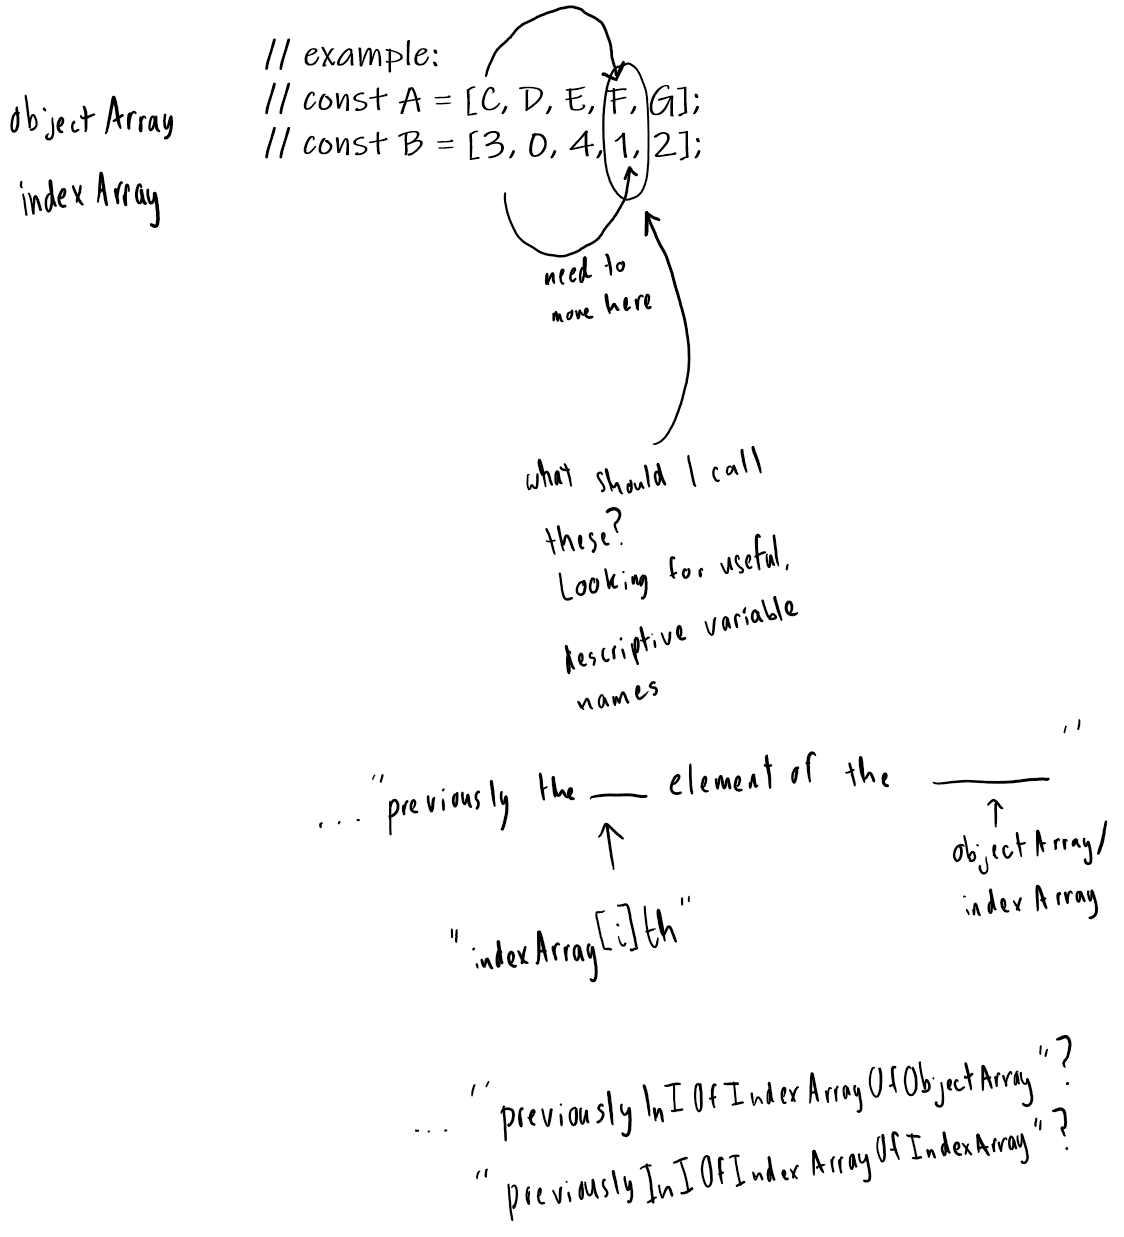 // example:
// const A = [C, D, E, F, G];
objectArray
// const B = [3, 0, 4, 1, 2];
indexArray
need to
move here
what should I call
these?
Looking for useful,
descriptive variable
names
... "previously the __ element of the ____"
objectArray/
indexArray
"indexArray[i]th"
... "previouslyInIOfIndexArrayOfObjectArray"?
"previouslyInIOfIndexArrayOfIndexArray"?